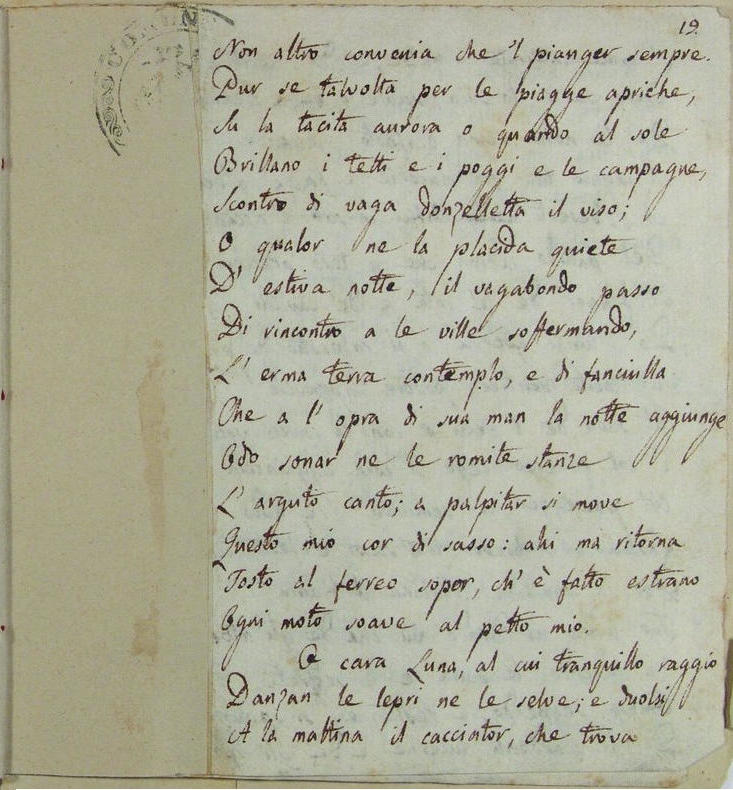 19.
Non altro convenia che 'l pianger sempre.
Pur se talvolta per le piagge apriche,
Su la tacita aurora o quando al sole
Brillano i tetti e i poggi e le campagne,
Scontro di vaga donzelletta il viso;
O qualor ne la placida quiete
D' estiva notte, il vagabondo passo
Di rincontro a le ville soffermando,
L' erma terra contemplo, e di fanciulla
Che a l' opra di sua man la notte aggiunge
Odo sonar ne le romite stanze
L' arguto canto; a palpitar si move
Questo mio cor di sasso: ahi ma ritorna
Tosto al ferreo sopor, ch' è fatto estrano
Ogni moto soave al petto mio.
O cara Luna, al cui tranquillo raggio
Danzan le lepri ne le selve; e duolsi
A la mattina il cacciator, che trova